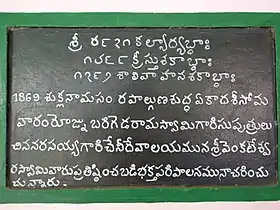 శ్రీ ౪౯౭౧ కల్యార్యబ్దాః
౧౭౯౧ శాలివాహనశకాబ్దాః
1869 శుక్లనామసం రపాల్గుణశుద్ధ ఏకాదశీసోమ
వారంరోజున బరిగెడరామస్వామిగారిసుపుత్రులు
చిననరసయ్యగారిచేనీదేవాలయమునశ్రీవెంకటేశ్వ
రస్వామివారుప్రతిష్ఠించబడిభక్తపరిపాలనమునాచరించు
చున్నారు.